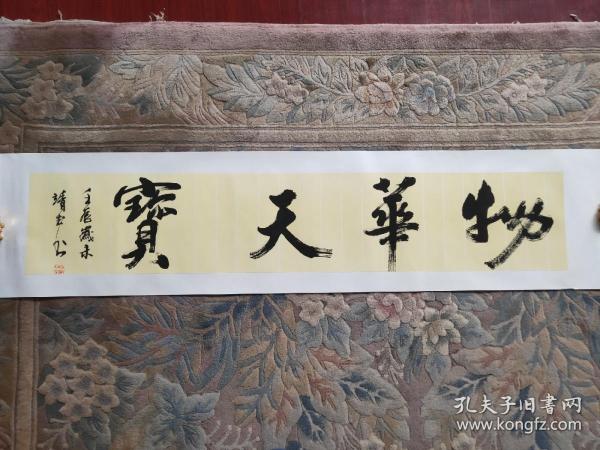 物華天寶
壬辰歲末
靖宏书
孔夫子旧书网
www.kongfz.com